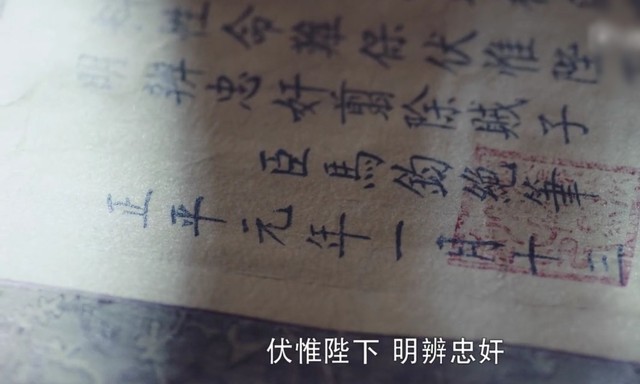 性命難保伏惟陛
明辨忠奸翦除賊子
臣馬鈞絕筆
正平元年一月十三
伏惟陛下 明辨忠奸